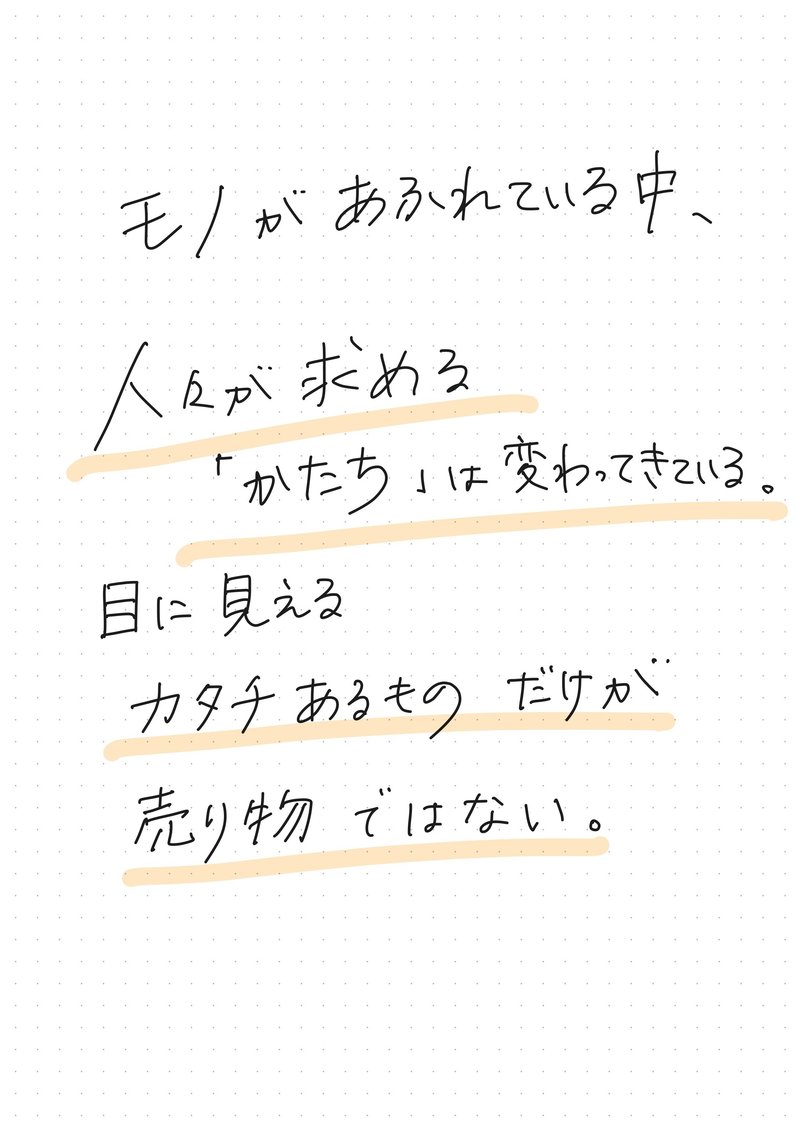 モノがあふれている中、
人々が求める
「かたち」は変わってきている。
目に見える
カタチあるものだけが
売り物ではない。